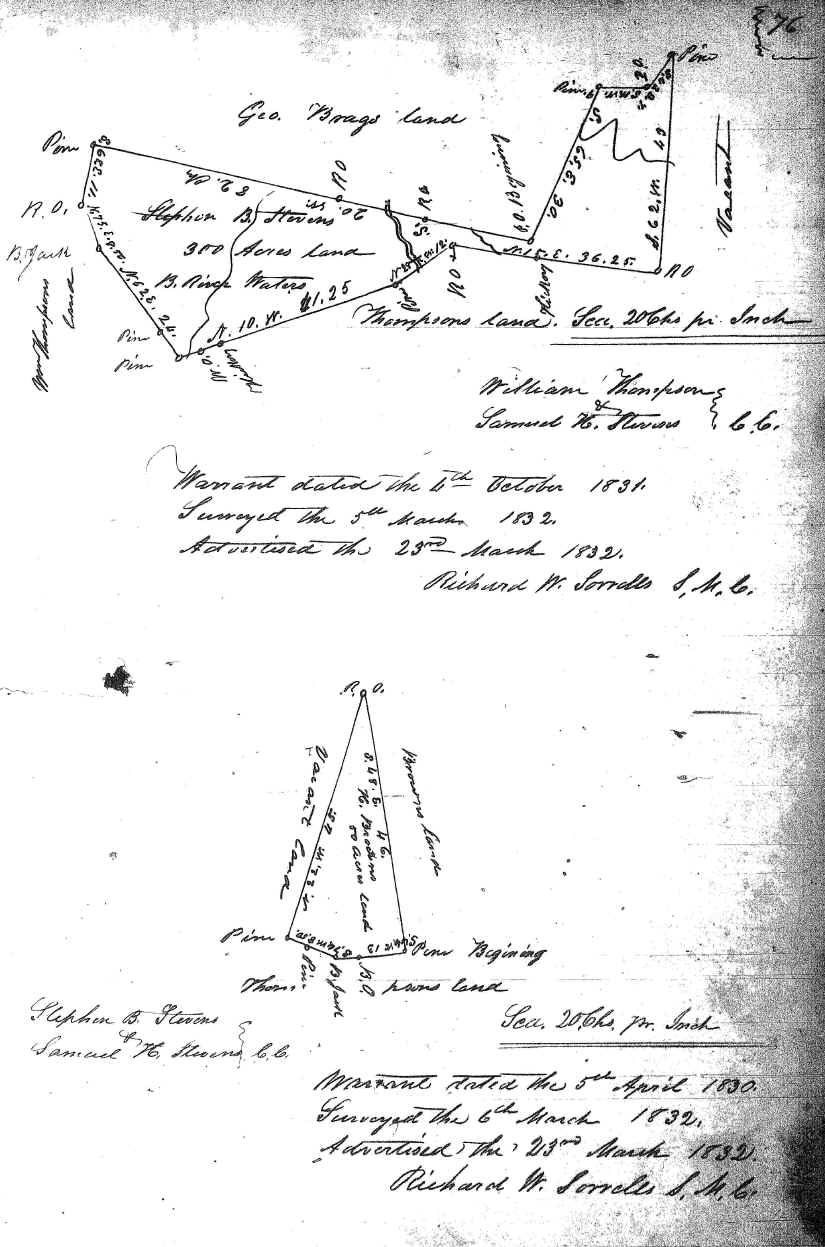 76
Pine
Pine
Geo. Brags land
Pine
82. Ch.
R O
Vacant
R. O.
Stephen B. Stevens
20.
R O
300 Acres land
B. Jack
B. River Waters
N. 15. E. 36.25.
R O
N. 62 E. 24.
N. 10. W. 41.25
R O
Hickory
Wm Thompsons land
Pine
Pine
Thompsons land. Sca. 20 Chs pr. Inch
William Thompson
&
Samuel H. Stevens } C. C.
Warrant dated the 4th October 1831.
Surveyed the 5th March 1832.
Advertised the 23rd March 1832.
Richard W. Sorrells S. M. C.
R. O.
Vacant land
S. 48. E. 46.
H. Brodins
50 Acres land
Browns land
Pine
Pine Begining
Pine
B. Jack
B. O.
Thompsons land
Stephen B. Stevens
&
Samuel H. Stevens } C. C.
Sca. 20 Chs. pr. Inch
Warrant dated the 5th April 1830.
Surveyed the 6th March 1832.
Advertised the 23rd March 1832.
Richard W. Sorrells S. M. C.